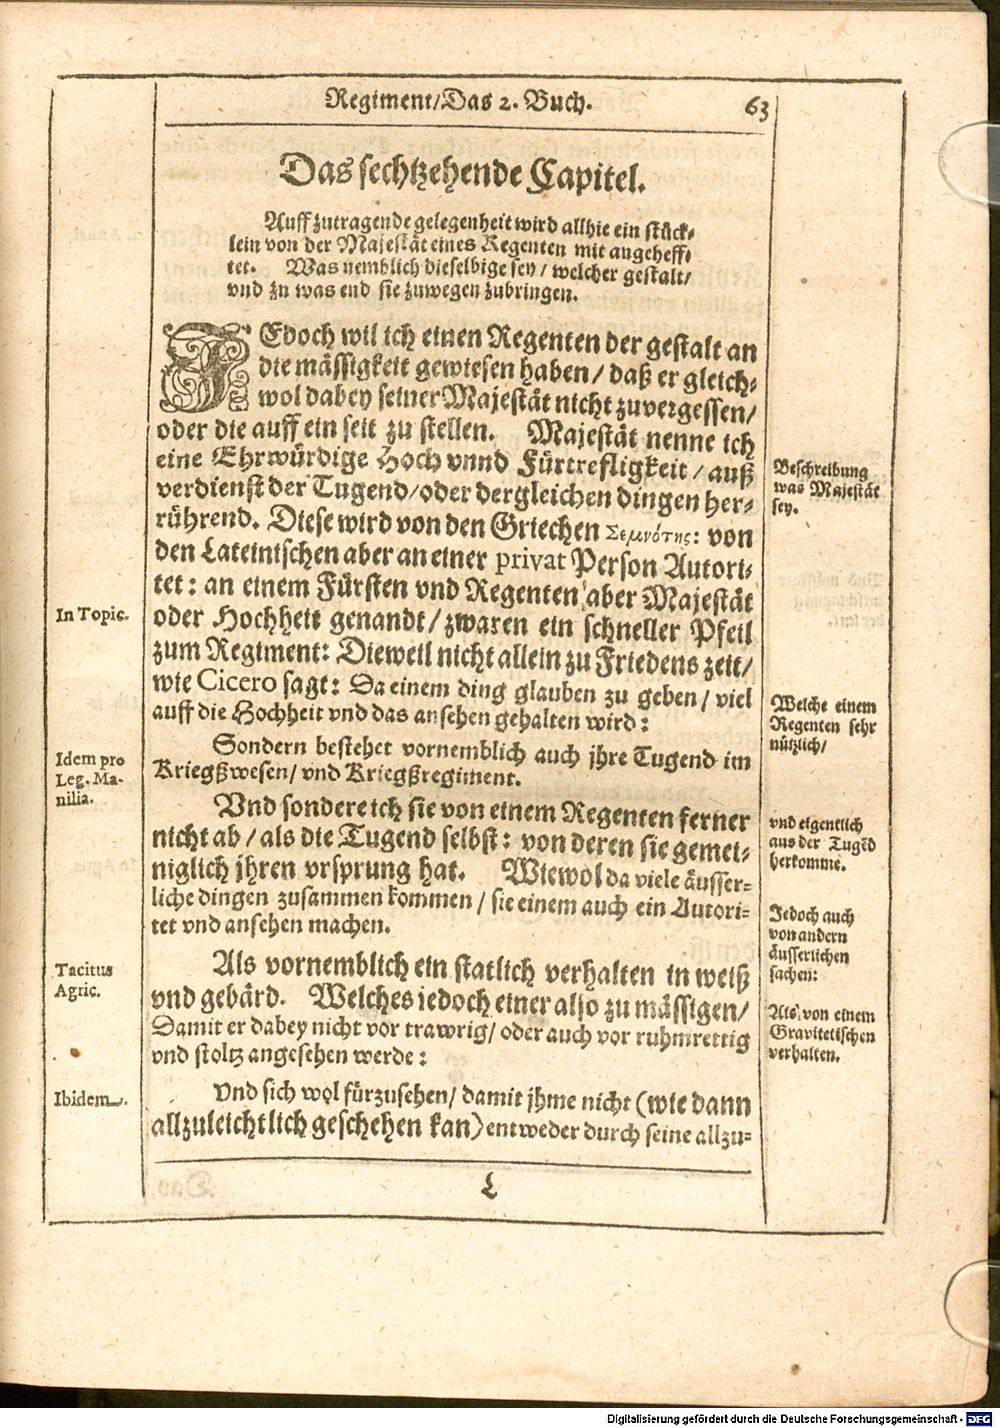 Regiment/Das 2. Buch. 63
Das sechtzehende Capitel.
Auff zutragende gelegenheit wird allhie ein stück-
lein von der Majestät eines Regenten mit angeheff-
tet. Was nemblich dieselbige sey/ welcher gestalt/
vnd zu was end sie zuwegen zubringen.
JEdoch wil ich einen Regenten der gestalt an
die mässigkeit gewiesen haben/ daß er gleich-
wol dabey seiner Majestät nicht zuvergessen/
oder die auff ein seit zu stellen. Majestät nenne ich
eine Ehrwürdige Hoch vnnd Fürtrefligkeit/ auß
verdienst der Tugend/oder dergleichen dingen her-
rührend. Diese wird von den Griechen Σεμνότης: von
den Lateinischen aber an einer privat Person Autori-
tet: an einem Fürsten vnd Regenten aber Majestät
oder Hochheit genandt/ zwaren ein schneller Pfeil
zum Regiment: Dieweil nicht allein zu Friedens zeit/
wie Cicero sagt: Da einem ding glauben zu geben/ viel
auff die Hochheit vnd das ansehen gehalten wird:
Sondern bestehet vornemblich auch jhre Tugend im
Kriegßwesen/ vnd Kriegßregiment.
Vnd sondere ich sie von einem Regenten ferner
nicht ab/ als die Tugend selbst: von deren sie gemei-
niglich jhren vrsprung hat. Wiewol da viele äusser-
liche dingen zusammen kommen/ sie einem auch ein Autori-
tet vnd ansehen machen.
Als vornemblich ein statlich verhalten in weiß
vnd gebärd. Welches jedoch einer also zu mässigen/
Damit er dabey nicht vor trawrig/ oder auch vor ruhmrettig
vnd stoltz angesehen werde:
Vnd sich wol fürzusehen/ damit jhme nicht (wie dann
allzuleichtlich geschehen kan) entweder durch seine allzu-
L
In Topic.
Idem pro
Leg. Ma-
nilia.
Tacitus
Agric.
Ibidem.
Beschreibung
was Majestät
sey.
Welche einem
Regenten sehr
nützlich/
vnd eigentlich
aus der Tugẽd
herkomme.
Jedoch auch
von andern
äusserlichen
sachen:
Als von einem
Gravitetischen
verhalten.
Digitalisierung gefördert durch die Deutsche Forschungsgemeinschaft - DFG